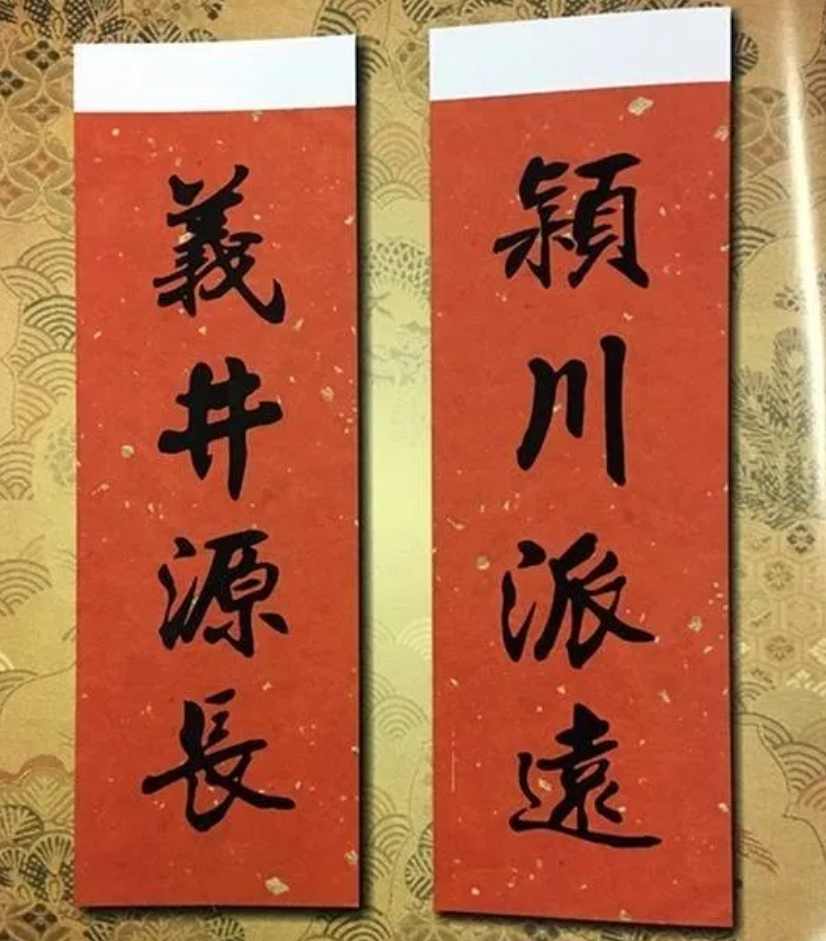 潁川派遠
義井源長